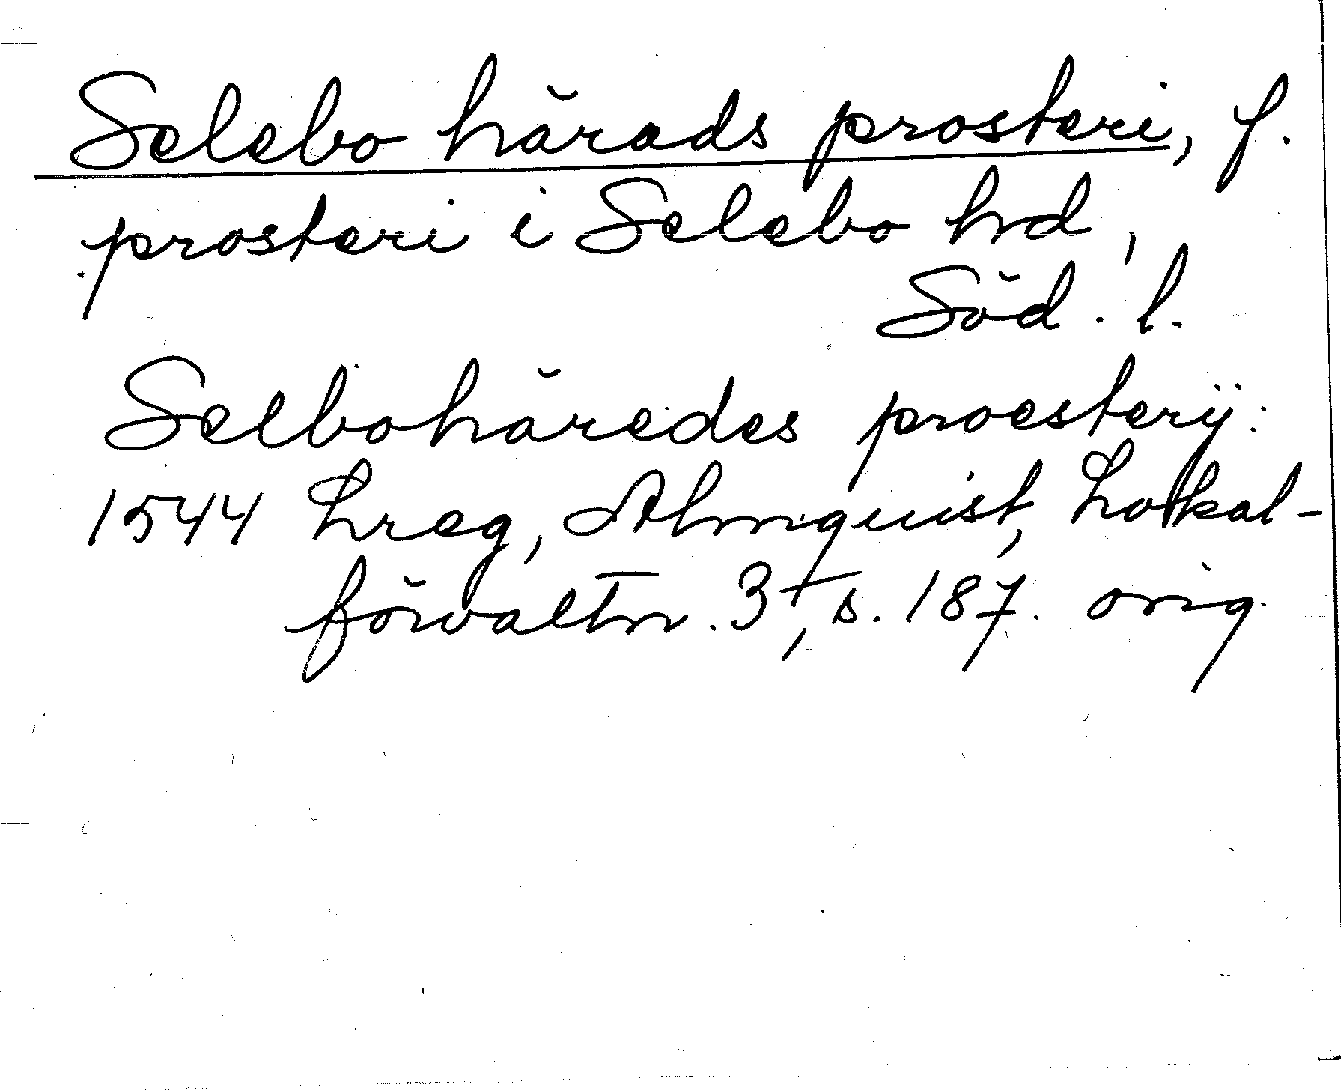 Selebo härads prosteri, f.
prosteri i Selebo hd,
Söd. l.
Selbohäredes proesterij:
1544 Lreg, Almquist, Lokal-
förvaltn. 3, s. 187. orig.